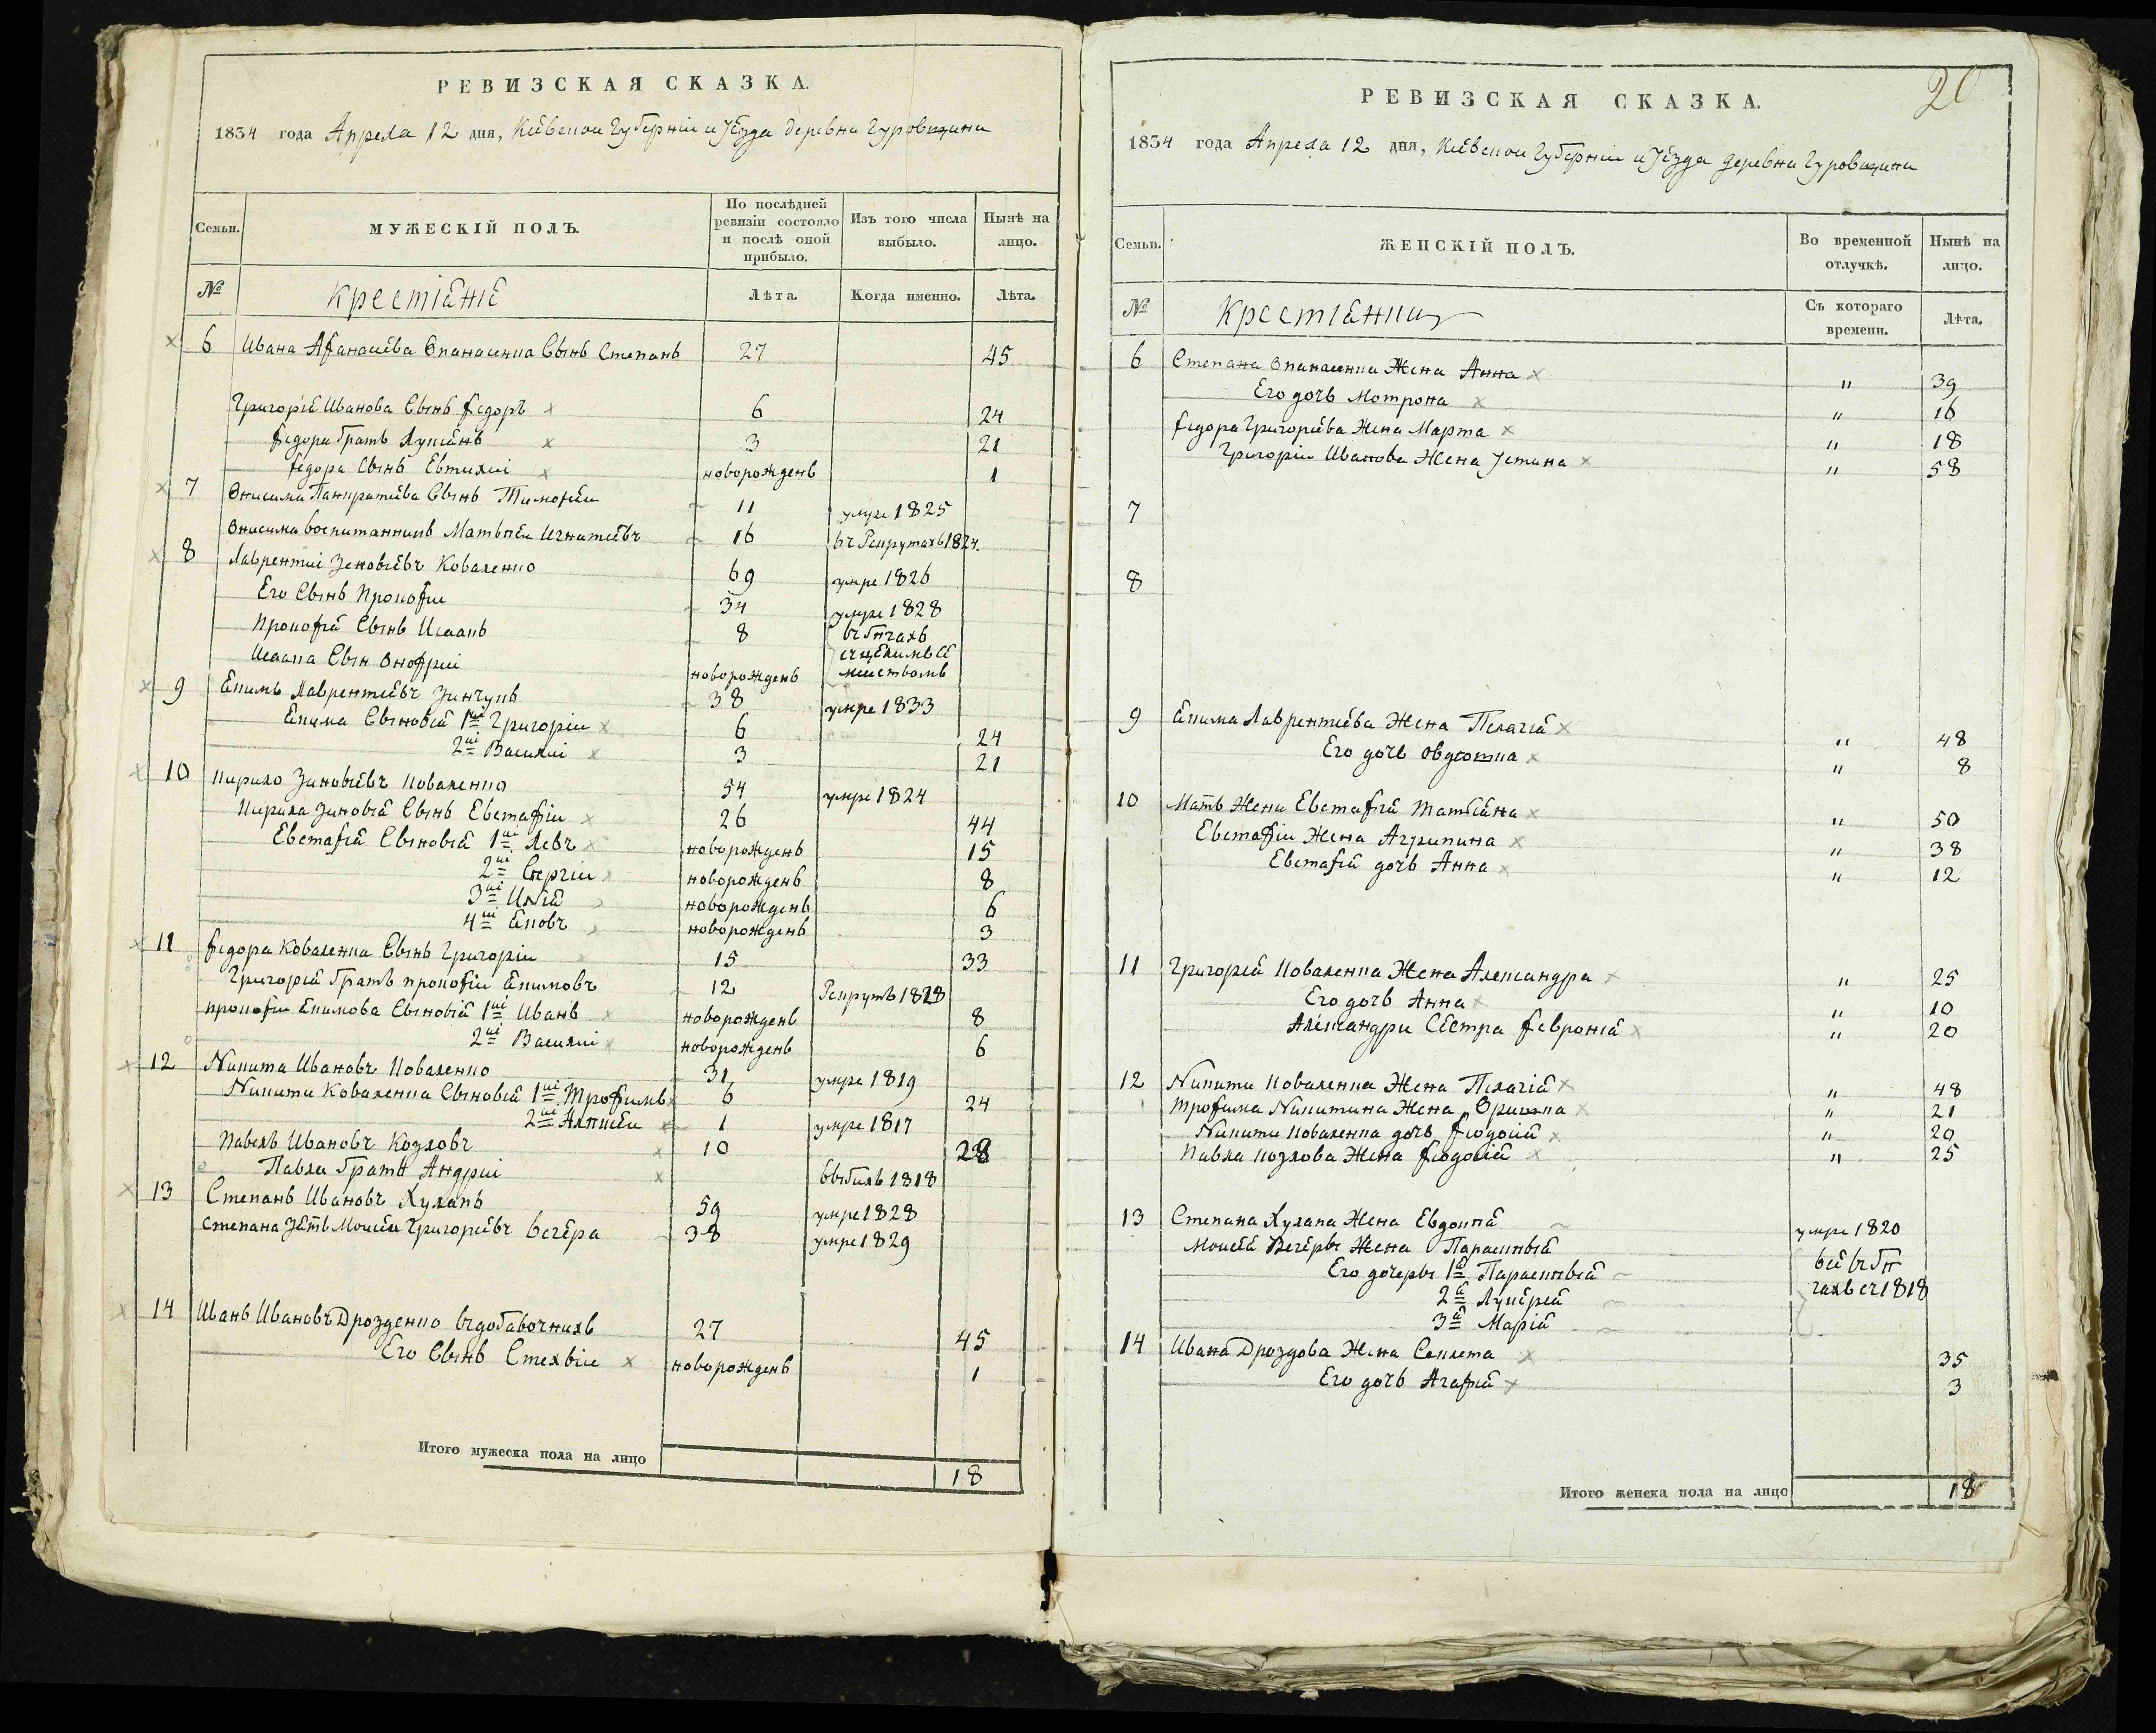 РЕВИЗСКАЯ СКАЗКА.
1834 года Апреля 12 дня, Кіевской Губерніи и Уезда деревни Гуровщини
Семьи. МУЖЕСКІЙ ПОЛЪ. По послѣдней ревизіи состояло и послѣ оной прибыло. Изъ того числа выбыло. Нынѣ на лицо.
№ крестіянѣ Лѣта. Когда именно. Лѣта.
6 Ивана Афанасіева Опанасенка Сынъ Степанъ 27 45
Григорія Иванова Сынъ Федоръ 6 24
Федора братъ Лукіянъ 3 21
Федора Сынъ Евтихіи новорожденъ 1
7 Онисима Панкратіева Сынъ Тимофеи 11 умре 1825
Онисима воспитанникъ Матьвеи Игнатіевъ 16 въ Рекрутахъ 1824.
8 Лаврентіи Зеновіевъ Коваленко 69 умре 1826
Его Сынъ Прокофіи 34 умре 1828
Прокофія Сынъ Исаакъ 8 въ бегахъ
Исаака Сын Онофріи новорожденъ сь цѣлимъ се мействомъ
9 Екимъ Лаврентіевъ Зинчукъ 38 умре 1833
Екима Сыновія 1й Григоріи 6 24
2й Василіи 3 21
10 Кирило Зиновіевъ Коваленко 54 умре 1824
Кирила Зиновія Сынъ Евстафіи 26 44
Евстафія Сыновія 1й Левъ новорожденъ 15
2й Сергіи новорожденъ 8
3й Илія новорожденъ 6
4й Яковъ новорожденъ 3
11 Федора Коваленка Сынъ Григоріи 15 33
Григорія братъ прокофіи Екимовъ 12 Рекрутъ 1828
прокофіи Екимова Сыновія 1й Иванъ новорожденъ 8
2й Василіи новорожденъ 6
12 Никита Ивановъ Коваленко 31 умре 1819
Никити Коваленка Сыновія 1й Трофимъ 6 24
2й Алексеи 1 умре 1817
Павелъ Ивановъ Козловъ 10 28
Павла братъ Андріи выбилъ 1818
13 Степанъ Ивановъ Хулапъ 59 умре 1828
Степана Зять Моисеи Григоріевъ Вечера 38 умре 1829
14 Иванъ Ивановъ Дрозденко въ добавочнихъ 27 45
Его Сынъ новорожденъ 1
Итого мужеска пола на лицо 18
20
РЕВИЗСКАЯ СКАЗКА.
1834 года Апреля 12 дня, Кіевской Губерніи и Уезда деревни Гуровщини
Семьи. ЖЕНСКІЙ ПОЛЪ. Во временной отлучкѣ. Нынѣ на лицо.
№ Крестіянки Съ котораго времени. Лѣта.
6 Степана Опанасенка Жена Анна " 39
Его дочь Мотрона " 16
Федора Григоріева Жена Марта " 18
Григоріи Иванова Жена Устина " 58
7
8
9 Екима Лаврентіева Жена Пелагія " 48
Его дочь Овдотка " 8
10 Мать Жени Евстафія Татіяна " 50
Евстафіи Жена Агрипина " 38
Евстафія дочь Анна " 12
11 Григорія Коваленка Жена Александра " 25
Его дочь Анна " 10
Александри Сестра Февронія " 20
12 Никити Коваленка Жена Пелагія " 48
Трофима Никитина Жена Оришка " 21
Никити Коваленка дочь Феодосія " 20
Павла Козлова Жена Феодосія " 25
13 Степана Хулапа Жена Евдокія умре 1820
Моисея Вечеры Жена Параскевія
Его дочеры 1я Параскевія все въ бе гахъ съ 1818
2я Лукерія
3я Марія
14 Ивана Дроздова Жена Секлета 35
Его дочь Агафія 3
Итого женска пола на лицо 18